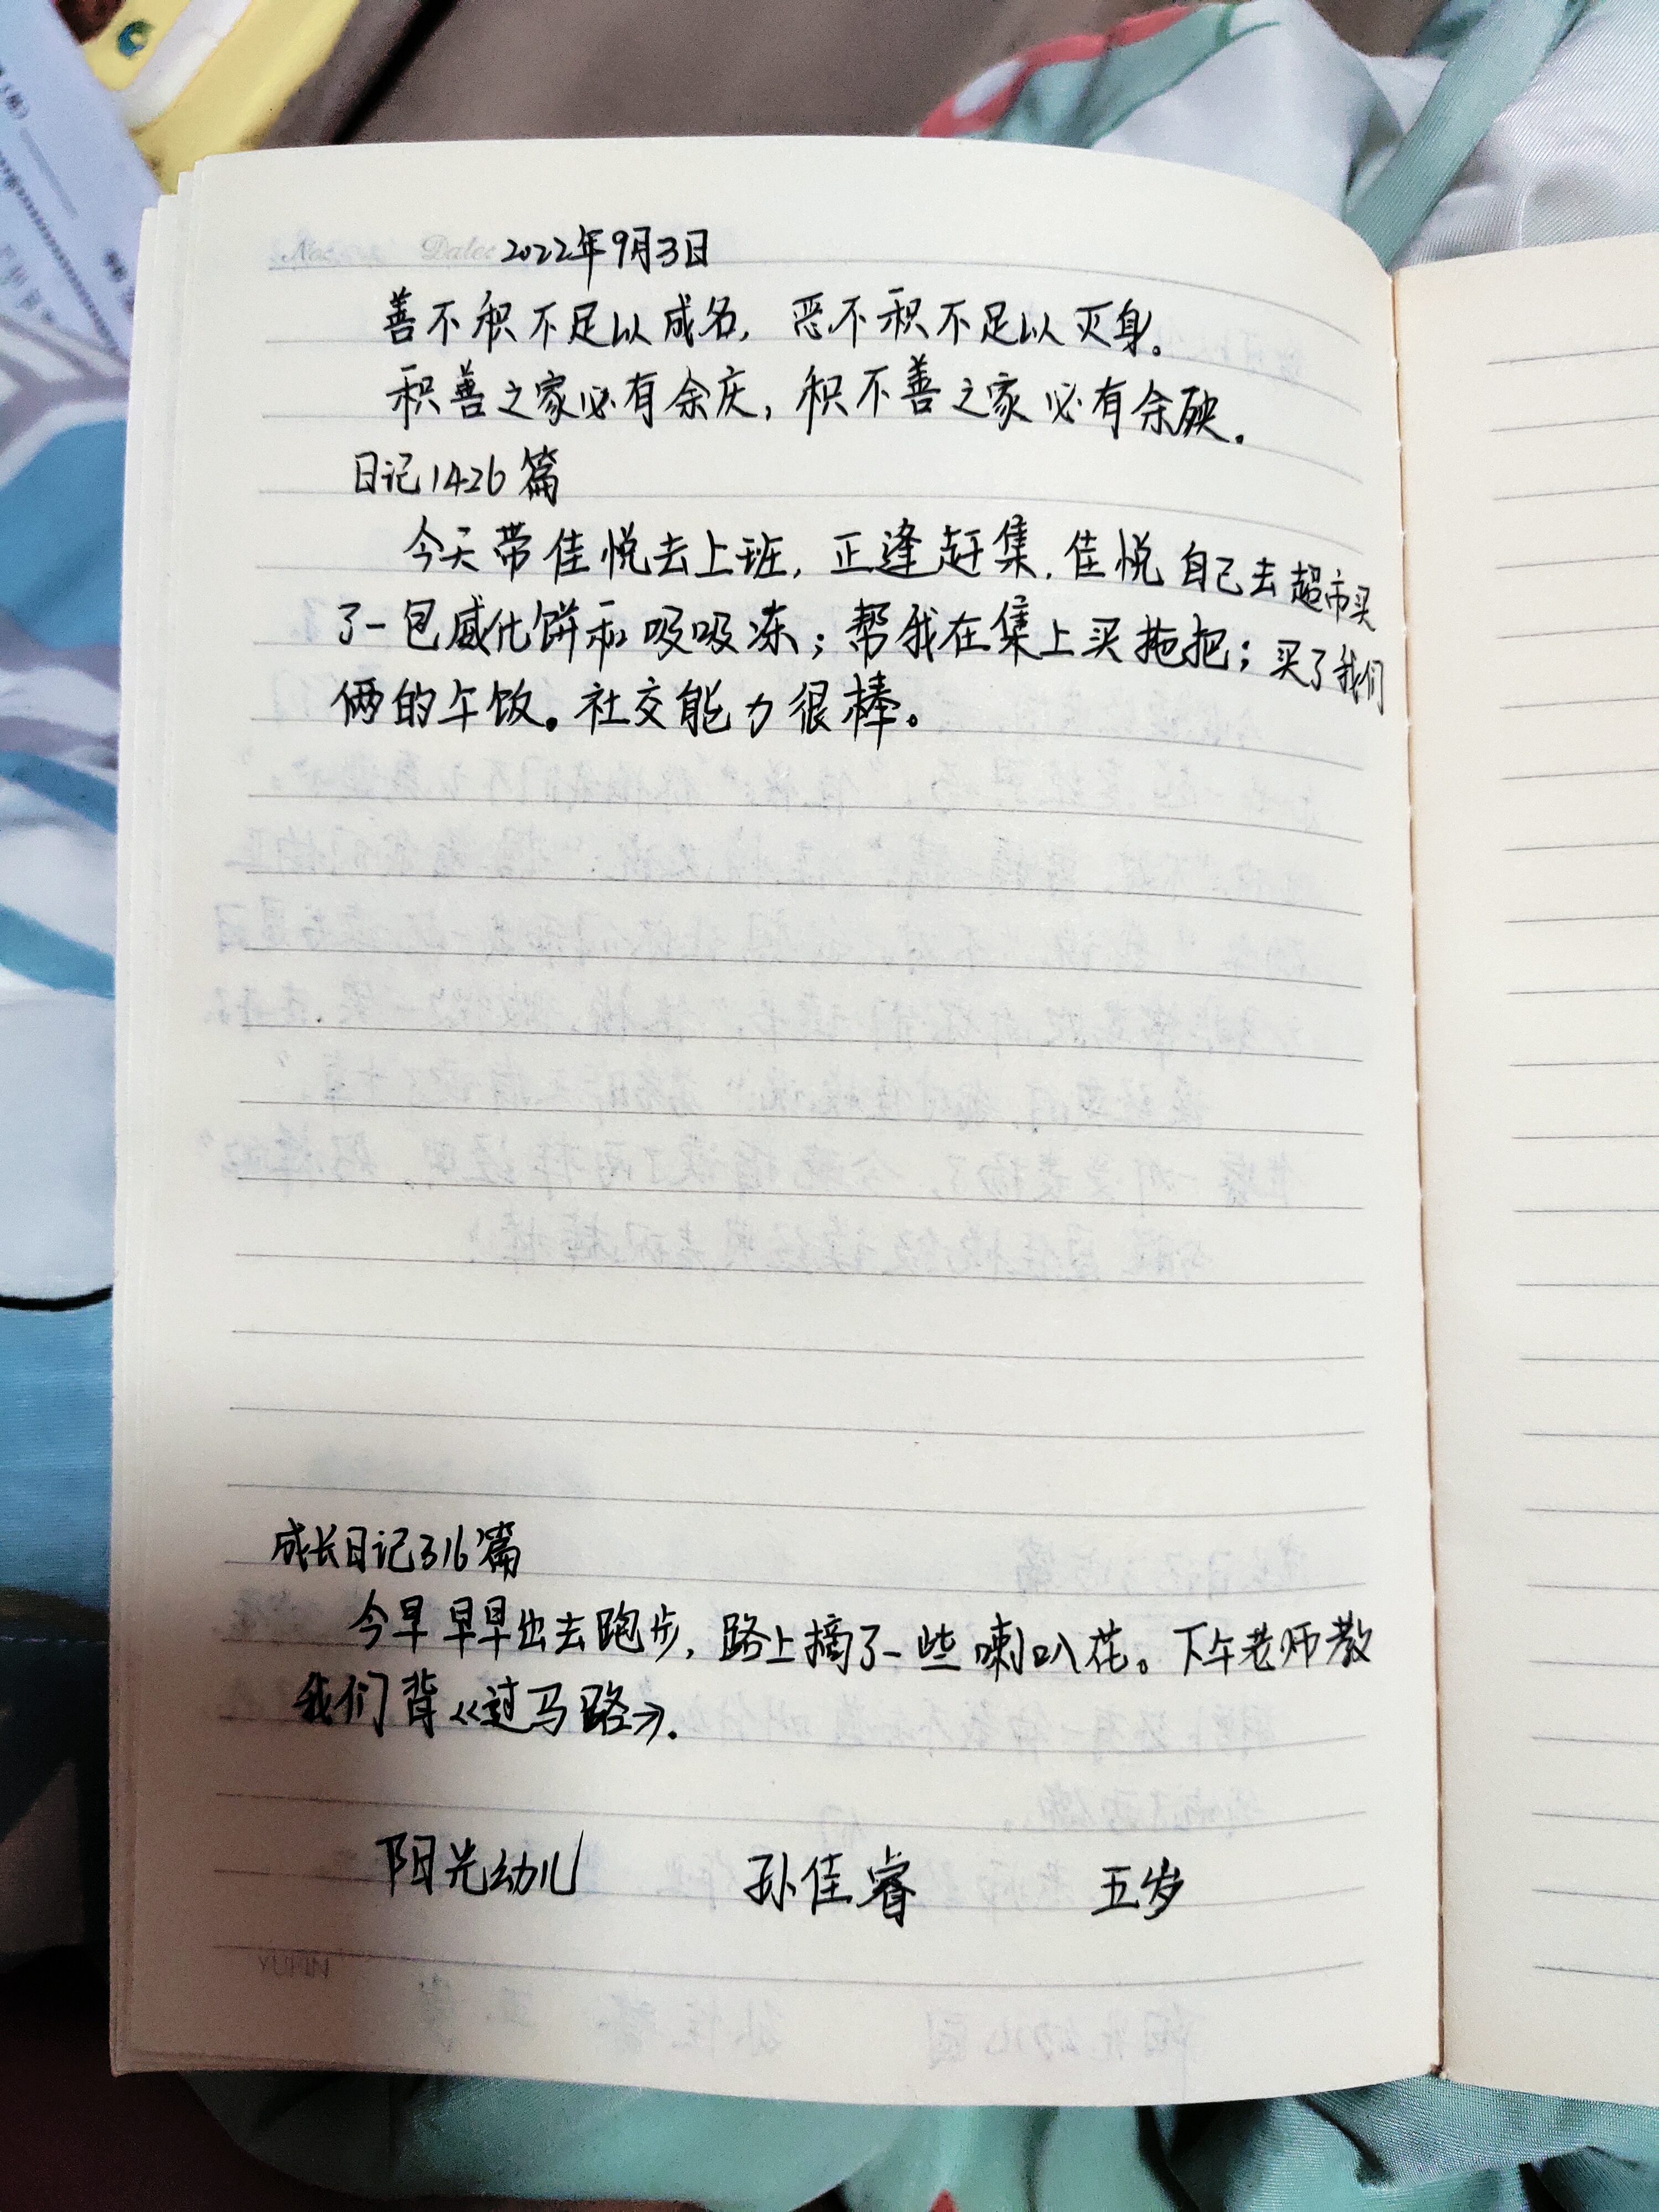 No: Date: 2022年9月3日
善不积不足以成名，恶不积不足以灭身。
积善之家必有余庆，积不善之家必有余殃。
日记1426篇
今天带佳悦去上班，正逢赶集，佳悦自己去超市买
了一包威化饼和吸吸冻；帮我在集上买拖把；买了我们
俩的午饭。社交能力很棒。
成长日记316篇
今早早早出去跑步，路上摘了一些喇叭花。下午老师教
我们背《过马路》.
阳光幼儿 孙佳睿 五岁
YURIN